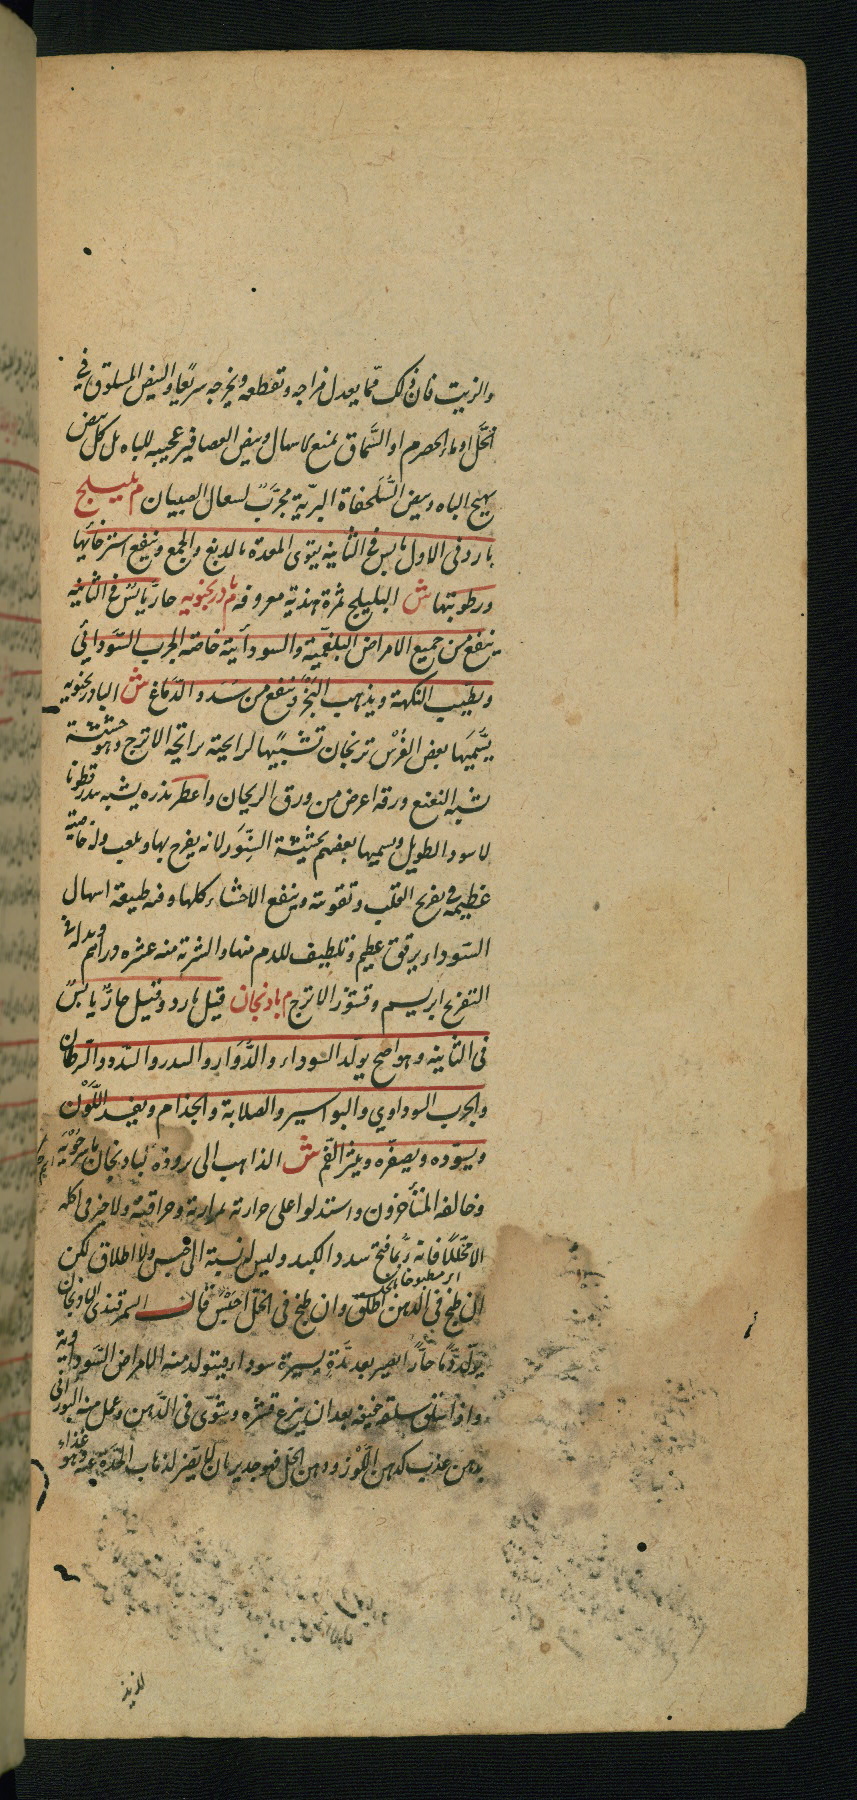 والزيت فان ذلك مما يعدل مزاجه وتقطعه ويخرجه سريعا والبيض المسلوق في
الخل او ماء الحصرم او السماق يمنع الاسهال وبيض العصافير عجيبه للباه بل كل بيض
يهيج الباه وبيض السلحفاة البرية مجرب لسعال الصبيان م بليلج
بارد في الاول يابس في الثانية يقوى المعدة بالدبغ والجمع وينفع استرخائها
ورطوبتها ش البليلج ثمرة هندية معروفه م بادرنجنويه حار يابس في الثانية
ينفع من جميع الامراض البلغمية والسوداية خاصة الجرب السوداني
ويطيب النكهة ويذهب البخر وينفع من سدد الدماغ ش البادرنجنويه
يسميها بعض الفرس ترنجان تشبيها لرايحته برائحة الاترج وهو حشيشة
شبه النعنع ورقه اعرض من ورق الريحان واعطر بذره يشبه بذر قطونا
لاسود الطويل ويسميها بعضهم بحشيشة السنور لانه يفرح بها ويلعب وله خاصية
عظيمة في تفريح القلب وتقويته وينفع الاحشاء كلها وفيه طبيعة اسهال
السوداء برفق عظيم وتلطيف للدم منها والشربة منه عشرة دراهم وبدله في
التفريح ابريسم وقشور الاترج م بادنجان قيل بارد وقيل حار يابس
في الثانية وهو اصح يولد السوداء والدوار والسدر والسدد والسرطان
والجرب السوداوي والبواسير والصلابة والجذام ويفسد اللون
ويسوده ويصفره ويبثر الفم ش الذاهب الى برودة البادنجان
وخالفه المتأخرون واستدلوا على حرارته بمرارته وحراقته ولا خير في اكله
الا مخللا فانه ربما فتح سدد الكبد وليس له نسبة الى حبس ولا اطلاق لكن
ان طبخ في الدهن اطلق وان طبخ في الخل احبس قال السمرقندي الباذنجان
يولد دما حارا يصير بعد مدة يسيرة سوداء فيتولد منه الامراض السوداوية
واذا سلق سلقه خفيفه بعد ان ينزع قشره وشوى في الدهن وعمل منه البوراني
بدهن عذب كدهن اللوز ودهن الخل فهو جدير بان لا يضر لذهاب الحدة عنه وهو غذاء
لذيذ